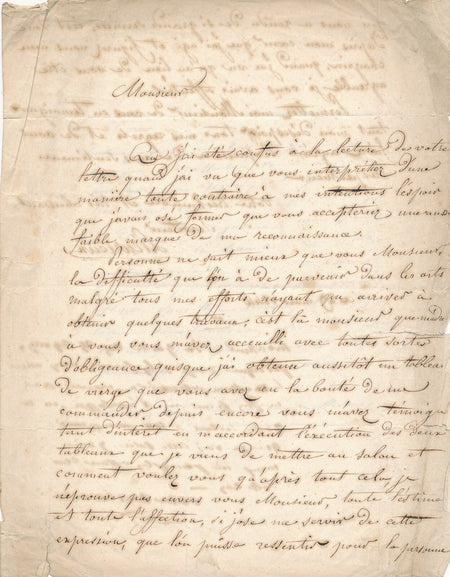 Monsieur
Que j'ai été confus à la lecture de votre
lettre quand j'ai vu que vous interprétiez d'une
manière toute contraire à mes intentions l'espoir
que j'avais osé former que vous accepteriez une
faible marque de ma reconnaissance.
Personne ne sait mieux que vous Monsieur,
la difficulté que l'on à de parvenir dans les arts
malgré tous mes efforts n'ayant pu arriver à
obtenir quelques travaux, c'est là monsieur que
à vous, vous m'avez accueilli avec toutes sortes
d'obligeance puisque j'ai obtenu aussitôt un tableau
de vierge que vous avez eu la bonté de me
commander, depuis encore vous m'avez témoigné
tant d'intérêt en m'accordant l'exécution des deux
tableaux que je viens de mettre au salon et
comment voulez vous qu'après tout cela je
n'éprouve pas envers vous Monsieur, toute l'estime
et toute l'affection, si j'ose me servir de cette
expression, que l'on puisse ressentir pour la personne